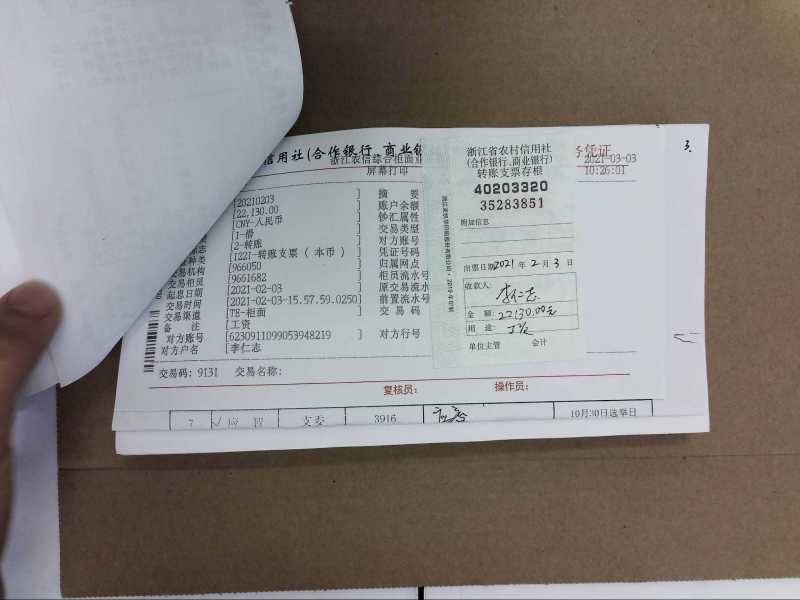 信用社(合作银行、商业银
务凭证
3.
浙江农信综合柜面业
2021-03-03
屏幕打印
10:26:01
[20210203 ] 摘 要
[22,130.00 ] 账户余额
[CNY-人民币 ] 钞汇属性
[1-借 ] 交易类型
[2-转账 ] 对方账号
[122I-转账支票(本币) ] 凭证号码
交易机构 [966050 ] 归属网点
交易柜员 [9661682 ] 柜员流水号
起息日期 [2021-02-03 ] 原交易流水
交易时间 [2021-02-03-15.57.59.0250] 前置流水号
交易渠道 [TE-柜面 ] 交 易 码
备 注 [工资
对方账号 [6230911099053948219 ] 对方行号
对方户名 [李仁志
交易码: 9131 交易名称:
复核员: 操作员:
浙江省农村信用社
(合作银行、商业银行)
转账支票存根
40203320
35283851
附加信息
出票日期2021 年 2 月 3 日
收款人:
李仁志
金 额: 22130.00元
用 途: 工资
单位主管 会计
7 支委 3916 10月30日选举日